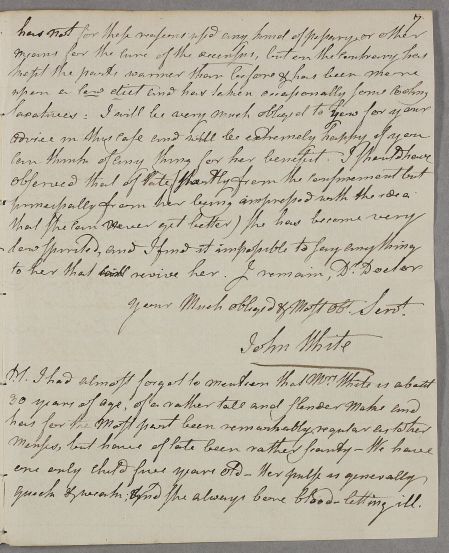 7
has not for these reasons used any kind of pessary or other
means for the cure of the accompt, but on the contrary has
kept the parts warmer than before & has been more
upon a low diet and has taken occasionally some Cooling
laxatives: I will be very much obliged to you for your
advice in this case and will be extremely happy if you
can think of any thing for her benefit. I should have
observed that of late (partly from the confinement but
principally from her being impressed with the idea
that she can never get better) she has become very
low spirited, and I find it impossible to say any thing
to her that will revive her. I remain, Dr. Doctor
your Much obliged & Most ob. Servt.
John White
I had almost forgot to mention that Mrs White is about
30 years of age, of a rather tall and slender make and
has for the most part been remarkably regular as to her
menses, but have of late been rather scanty - We have
one only child five years old - Her pulse is generally
quick & weak. And she always bore blood-letting ill.